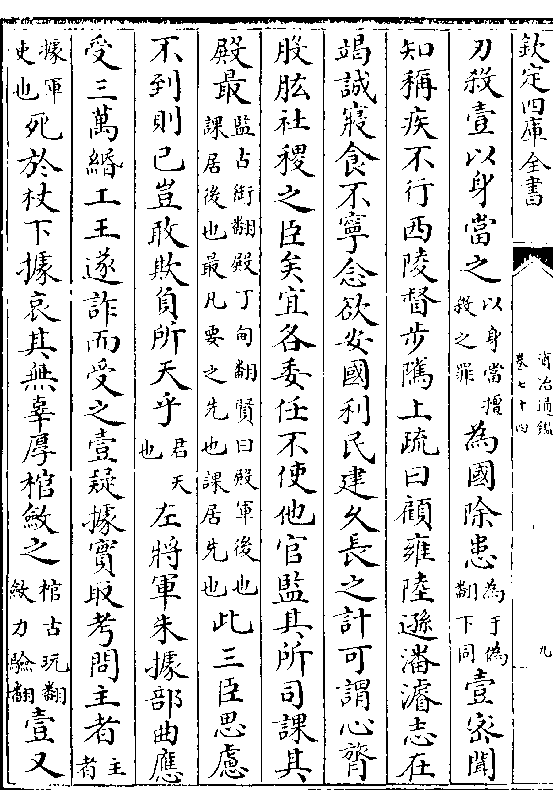 欽定四庫全書
資治通鑑
卷七十四
九
刃殺壹以身當之以身當擅殺之罪為國除患為于偽翻下同壹密聞
知稱疾不行西陵督步隲上疏曰顧雍陸遜潘濬志在
竭誠寢食不寧念欲安國利民建久長之計可謂心膂
股肱社稷之臣矣宜各委任不使他官監其所司課其
殿最監古銜翻殿丁甸翻賢曰殿軍後也課居後也最凡要之先也課居先也此三臣思慮
不到則已豈敢欺負所天乎君天也左將軍朱據部曲應
受三萬緡工王遂詐而受之壹疑據實取考問主者主者
據軍吏也死於杖下據哀其無辜厚棺斂之棺古玩翻斂力驗翻壹又